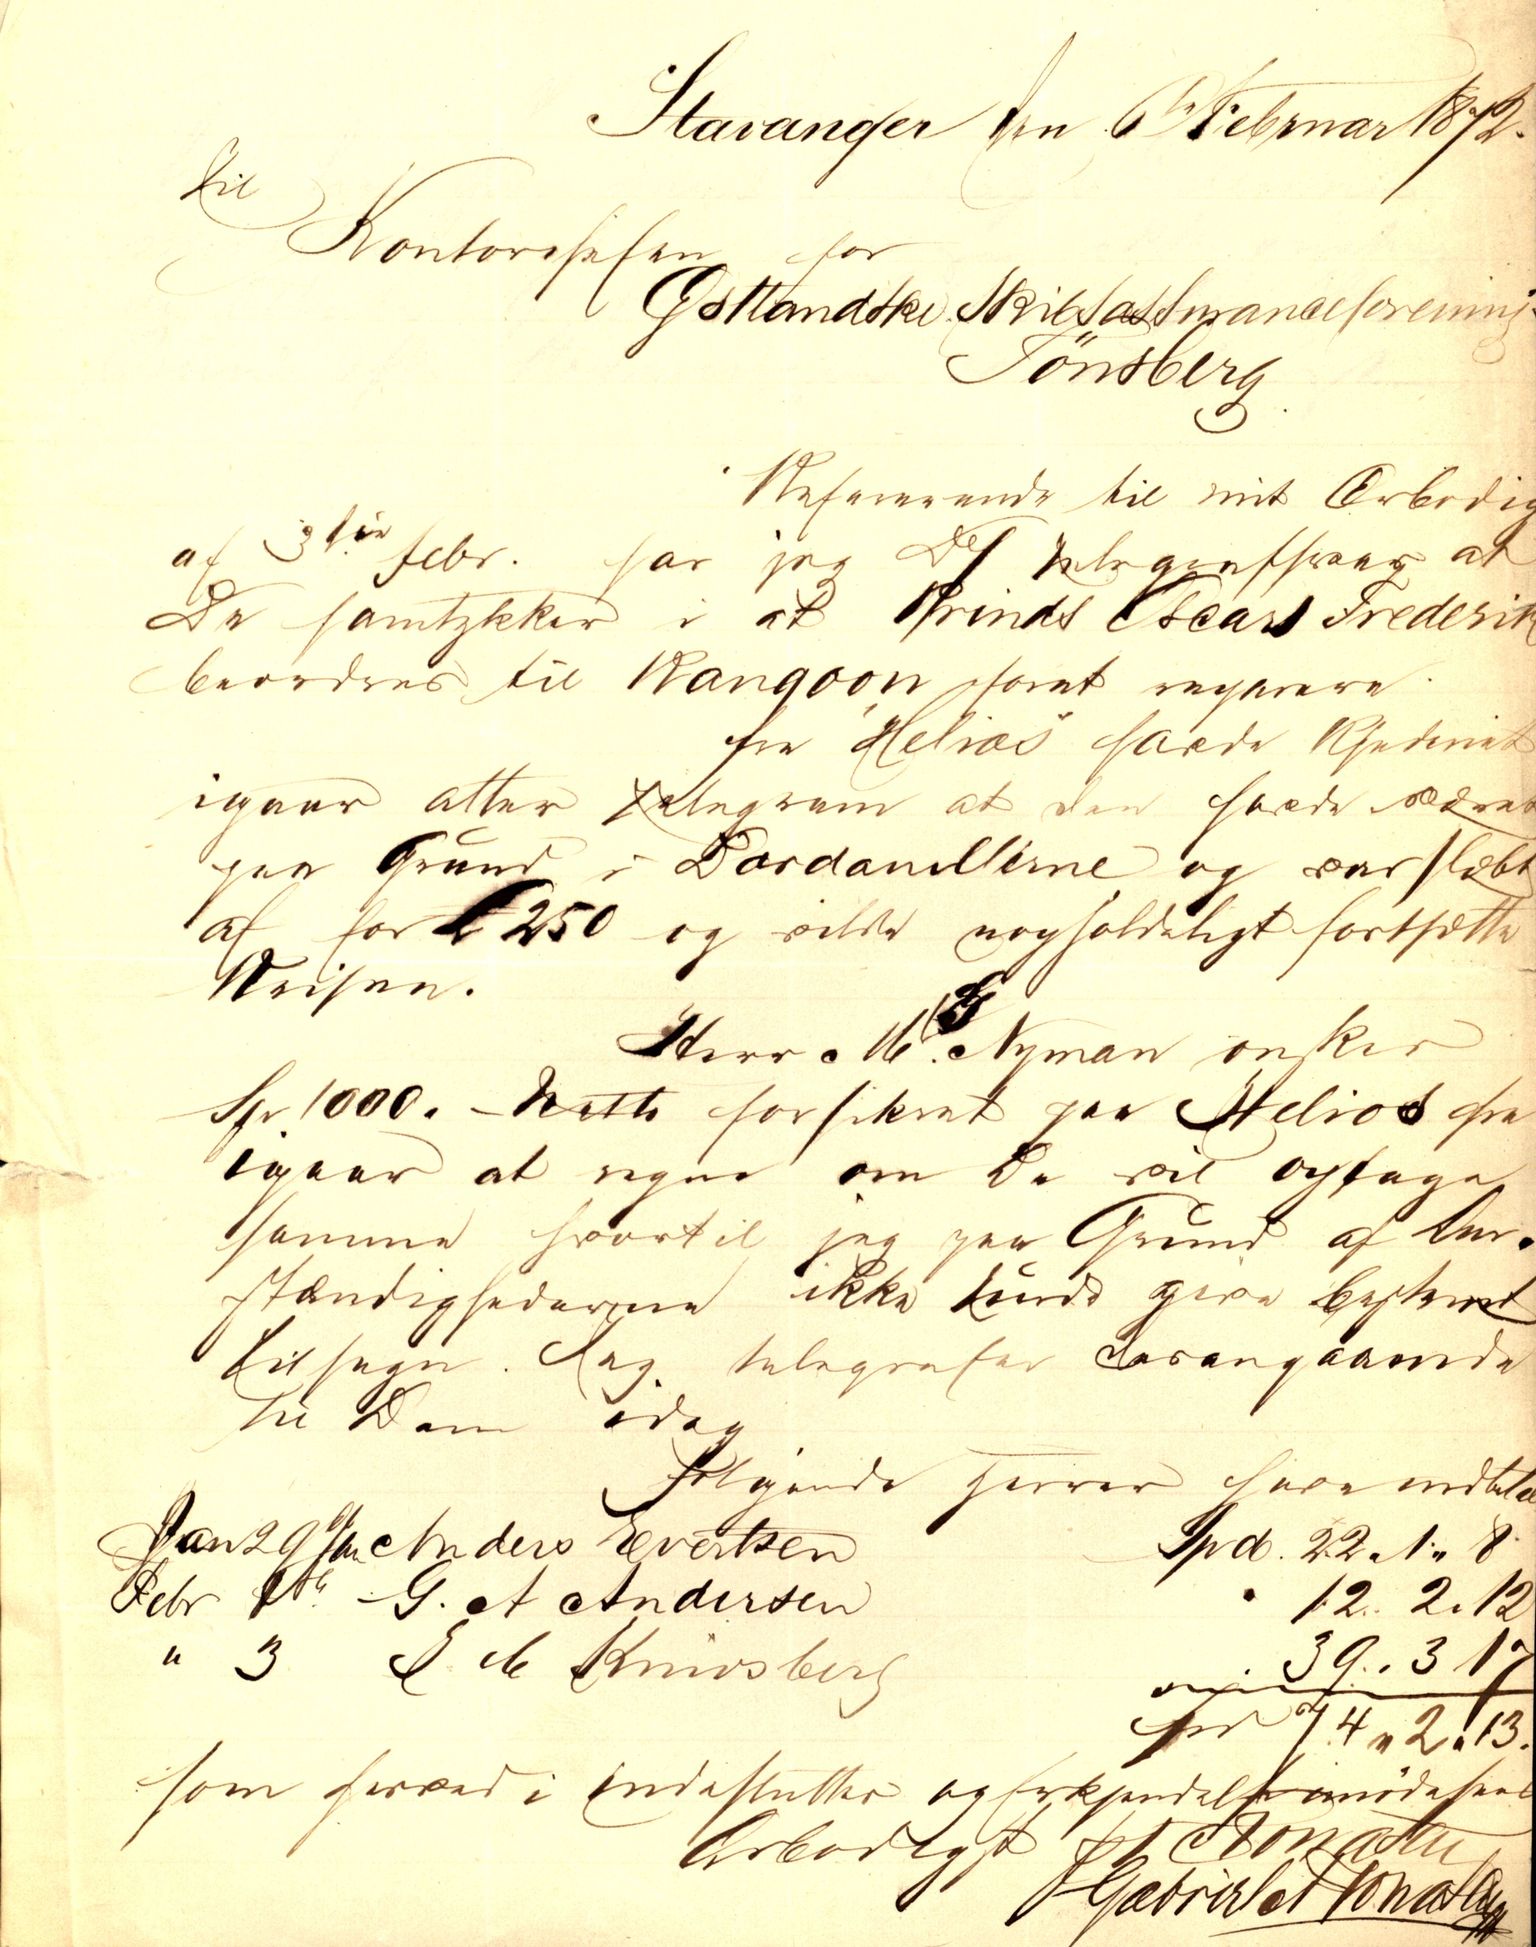 Stavanger den 6te Februar 1872.
Til
Kontorchefen for
Østlandske Skibsassuranceforening
Tönsberg
Refererende til mit Ærbodig
af 3die febr. har jeg Ds telegrafsvar at
De samtykker i at Prinds Oscars Frederik
beordres til Rangoon forat reparere
fra "Helios" havde Rhederiet
igaar atter telegram at den havde været
paa Grund i Dardanellerne og var slæbt
af for £ 250 og vilde uopholdeligt fortsætte
Reisen.
Herr M. G Nyman ønsker
Spr 1000. Netto forsikret paa Helios fra
igaar at regne om De vil optage
samme hvortil jeg paa Grund af Om-
stændighederne ikke turde give bestemt
tilsagn. Jeg telegraferer desangaaende
til Dem idag
Følgende Herrer have indbetalt
Jan 29 Anders Evertsen Spd. 22. 1. 8
Febr 1ste G. A Andersen " 12. 2. 12
" 3 L M Kniosberg " 39. 3 17
Spd 74 " 2 " 13.
som herved i indesluttes og Erkjendelse imødesees
Ærbødigst
Gabriel A Monatu